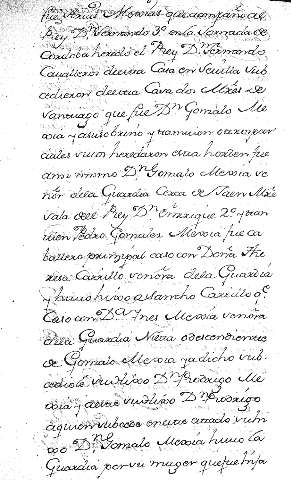 fue Mexias que acompaño al
Rey Dⁿ Fernando 3º en la Jornada de
Cordoba heredó el Rey Dⁿ Fernando
Cavalleros de esta Casa en Sevilla sub
cedieron de esta Casa dos Mrẽs de
Santiago que fue Dⁿ Gonzalo Me
xia y a su sobrino y tambien otros por
vivien heredaron esta horden fue
ansi mismo Dⁿ Gonzalo Mexia se
ñor dela Guardia Cerca de Jaen
del Rey Dⁿ Enrrique 2º y tam
vien Pedro Gonzales Mexia fue ca
ballero principal caso con Doña The
resa Carrillo señora dela Guardia
y hixo a Sancho Carrillo qᵉ
Caso con Dª Ynes Mexia señora
dela Guardia Nieta o descendiente
de Gonzalo Mexia ya dicho sub
cedio le su hixo Dⁿ Rodrigo Me
xia y a este su hixo Dⁿ Rodrigo
a quien subcedio en este estado su hi
xo Dⁿ Gonzalo Mexia huvo la
Guardia por su muger que fue hija